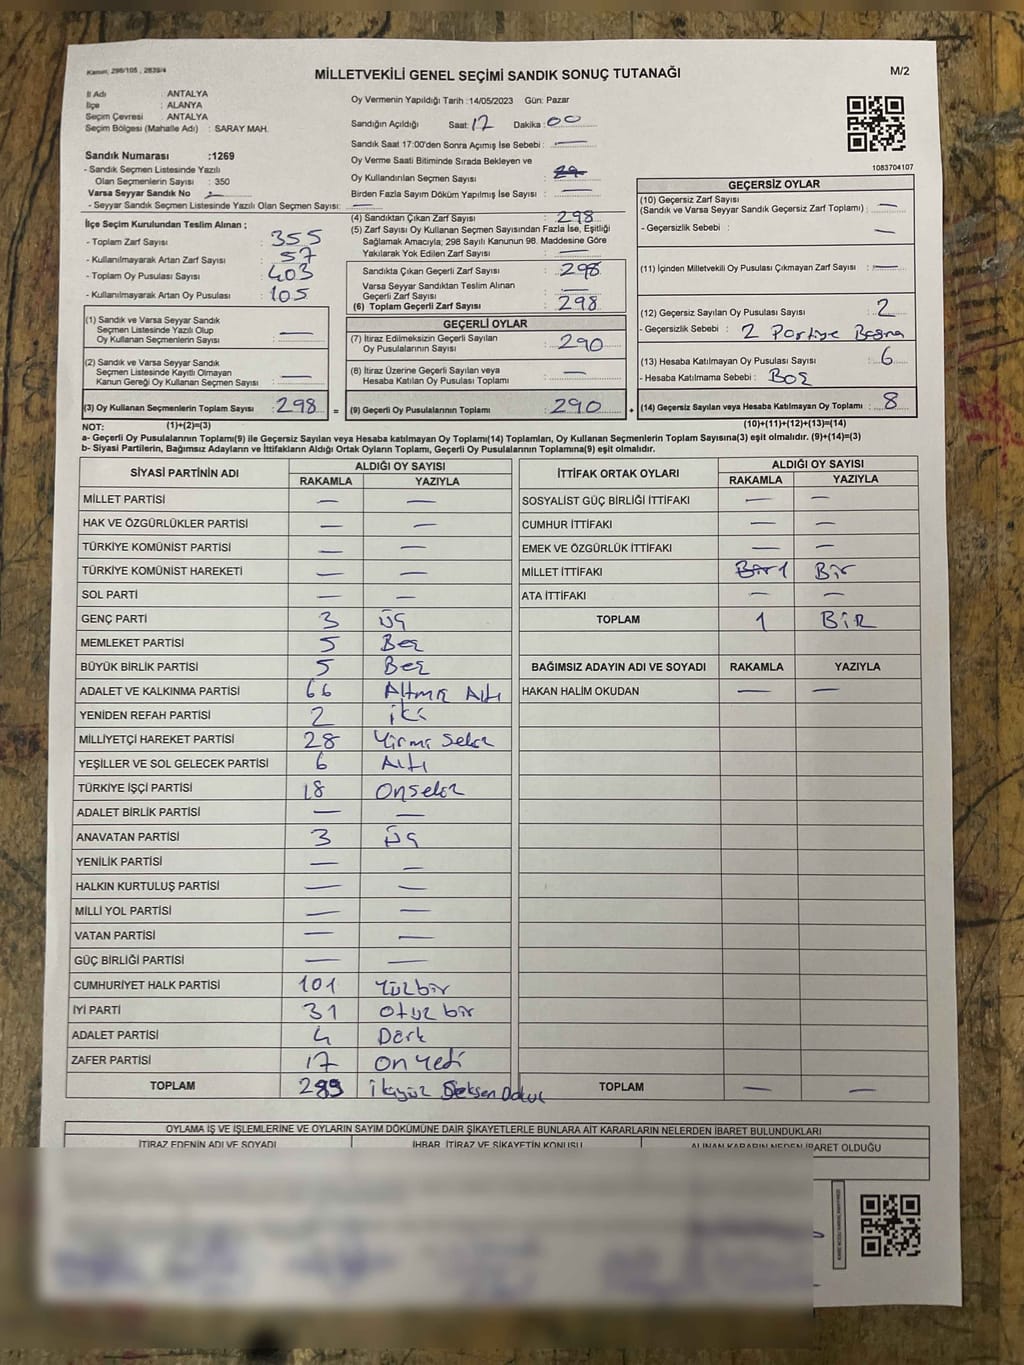 Kanun, 298/105 , 2839/4
MİLLETVEKİLİ GENEL SEÇİMİ SANDIK SONUÇ TUTANAĞI
M/2
İl Adı : ANTALYA
İlçe : ALANYA
Seçim Çevresi : ANTALYA
Seçim Bölgesi (Mahalle Adı) : SARAY MAH.
Oy Vermenin Yapıldığı Tarih :14/05/2023 Gün: Pazar
Sandığın Açıldığı Saat: 17 Dakika : 00
Sandık Saat 17:00'den Sonra Açımış İse Sebebi : —
Oy Verme Saati Bitiminde Sırada Bekleyen ve
Oy Kullandırılan Seçmen Sayısı :
Birden Fazla Sayım Döküm Yapılmış İse Sayısı : —
1083704107
Sandık Numarası :1269
- Sandık Seçmen Listesinde Yazılı
Olan Seçmenlerin Sayısı : 350
Varsa Seyyar Sandık No : —
- Seyyar Sandık Seçmen Listesinde Yazılı Olan Seçmen Sayısı: —
İlçe Seçim Kurulundan Teslim Alınan ;
- Toplam Zarf Sayısı : 355
- Kullanılmayarak Artan Zarf Sayısı : 57
- Toplam Oy Pusulası Sayısı : 403
- Kullanılmayarak Artan Oy Pusulası : 105
(1) Sandık ve Varsa Seyyar Sandık
Seçmen Listesinde Yazılı Olup
Oy Kullanan Seçmenlerin Sayısı : —
(2) Sandık ve Varsa Seyyar Sandık
Seçmen Listesinde Kayıtlı Olmayan
Kanun Gereği Oy Kullanan Seçmen Sayısı : —
(3) Oy Kullanan Seçmenlerin Toplam Sayısı : 298 =
(4) Sandıktan Çıkan Zarf Sayısı : 298
(5) Zarf Sayısı Oy Kullanan Seçmen Sayısından Fazla İse, Eşitliği
Sağlamak Amacıyla; 298 Sayılı Kanunun 98. Maddesine Göre
Yakılarak Yok Edilen Zarf Sayısı : —
Sandıkta Çıkan Geçerli Zarf Sayısı : 298
Varsa Seyyar Sandıktan Teslim Alınan
Geçerli Zarf Sayısı : —
(6) Toplam Geçerli Zarf Sayısı : 298
GEÇERLİ OYLAR
(7) İtiraz Edilmeksizin Geçerli Sayılan
Oy Pusulalarının Sayısı : 290
(8) İtiraz Üzerine Geçerli Sayılan veya
Hesaba Katılan Oy Pusulası Toplamı : —
(9) Geçerli Oy Pusulalarının Toplamı : 290 +
GEÇERSİZ OYLAR
(10) Geçersiz Zarf Sayısı
(Sandık ve Varsa Seyyar Sandık Geçersiz Zarf Toplamı) : —
- Geçersizlik Sebebi : —
(11) İçinden Milletvekili Oy Pusulası Çıkmayan Zarf Sayısı : —
(12) Geçersiz Sayılan Oy Pusulası Sayısı : 2
- Geçersizlik Sebebi : 2 Partiye Basma
(13) Hesaba Katılmayan Oy Pusulası Sayısı : 6
- Hesaba Katılmama Sebebi : BOŞ
(14) Geçersiz Sayılan veya Hesaba Katılmayan Oy Toplamı : 8
NOT: (1)+(2)=(3) (10)+(11)+(12)+(13)=(14)
a- Geçerli Oy Pusulalarının Toplamı(9) ile Geçersiz Sayılan veya Hesaba katılmayan Oy Toplamı(14) Toplamları, Oy Kullanan Seçmenlerin Toplam Sayısına(3) eşit olmalıdır. (9)+(14)=(3)
b- Siyasi Partilerin, Bağımsız Adayların ve İttifakların Aldığı Ortak Oyların Toplamı, Geçerli Oy Pusulalarının Toplamına(9) eşit olmalıdır.
SİYASİ PARTİNİN ADI ALDIĞI OY SAYISI
RAKAMLA YAZIYLA
MİLLET PARTİSİ — —
HAK VE ÖZGÜRLÜKLER PARTİSİ — —
TÜRKİYE KOMÜNİST PARTİSİ — —
TÜRKİYE KOMÜNİST HAREKETİ — —
SOL PARTİ — —
GENÇ PARTİ 3 üç
MEMLEKET PARTİSİ 5 Beş
BÜYÜK BİRLİK PARTİSİ 5 Beş
ADALET VE KALKINMA PARTİSİ 66 Altmış Altı
YENİDEN REFAH PARTİSİ 2 iki
MİLLİYETÇİ HAREKET PARTİSİ 28 Yirmi Sekiz
YEŞİLLER VE SOL GELECEK PARTİSİ 6 Altı
TÜRKİYE İŞÇİ PARTİSİ 18 Onsekiz
ADALET BİRLİK PARTİSİ — —
ANAVATAN PARTİSİ 3 Üç
YENİLİK PARTİSİ — —
HALKIN KURTULUŞ PARTİSİ — —
MİLLİ YOL PARTİSİ — —
VATAN PARTİSİ — —
GÜÇ BİRLİĞİ PARTİSİ — —
CUMHURİYET HALK PARTİSİ 101 Yüzbir
İYİ PARTİ 31 Otuz bir
ADALET PARTİSİ 4 Dört
ZAFER PARTİSİ 17 On Yedi
TOPLAM 289 ikiyüz Seksen Dokuz
İTTİFAK ORTAK OYLARI ALDIĞI OY SAYISI
RAKAMLA YAZIYLA
SOSYALİST GÜÇ BİRLİĞİ İTTİFAKI — —
CUMHUR İTTİFAKI — —
EMEK VE ÖZGÜRLÜK İTTİFAKI — —
MİLLET İTTİFAKI Bir 1 Bir
ATA İTTİFAKI — —
TOPLAM 1 BİR
BAĞIMSIZ ADAYIN ADI VE SOYADI RAKAMLA YAZIYLA
HAKAN HALİM OKUDAN — —
TOPLAM — —
OYLAMA İŞ VE İŞLEMLERİNE VE OYLARIN SAYIM DÖKÜMÜNE DAİR ŞİKAYETLERLE BUNLARA AİT KARARLARIN NELERDEN İBARET BULUNDUKLARI
İTİRAZ EDENİN ADI VE SOYADI İHBAR, İTİRAZ VE ŞİKAYETİN KONUSU ALINAN KARARIN NEDEN İBARET OLDUĞU